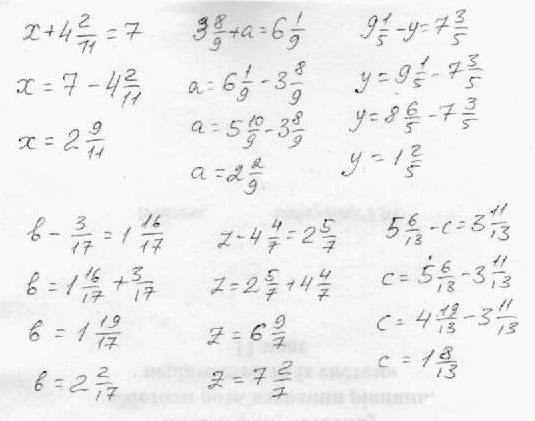 x + 4 2/11 = 7
x = 7 - 4 2/11
x = 2 9/11
3 8/9 + a = 6 1/9
a = 6 1/9 - 3 8/9
a = 5 10/9 - 3 8/9
a = 2 2/9
9 1/5 - y = 7 3/5
y = 9 1/5 - 7 3/5
y = 8 6/5 - 7 3/5
y = 1 2/5
в - 3/17 = 1 16/17
в = 1 16/17 + 3/17
в = 1 19/17
в = 2 2/17
z - 4 4/7 = 2 5/7
z = 2 5/7 + 4 4/7
z = 6 9/7
z = 7 2/7
5 6/13 - c = 3 11/13
c = 5 6/13 - 3 11/13
c = 4 19/13 - 3 11/13
c = 1 8/13